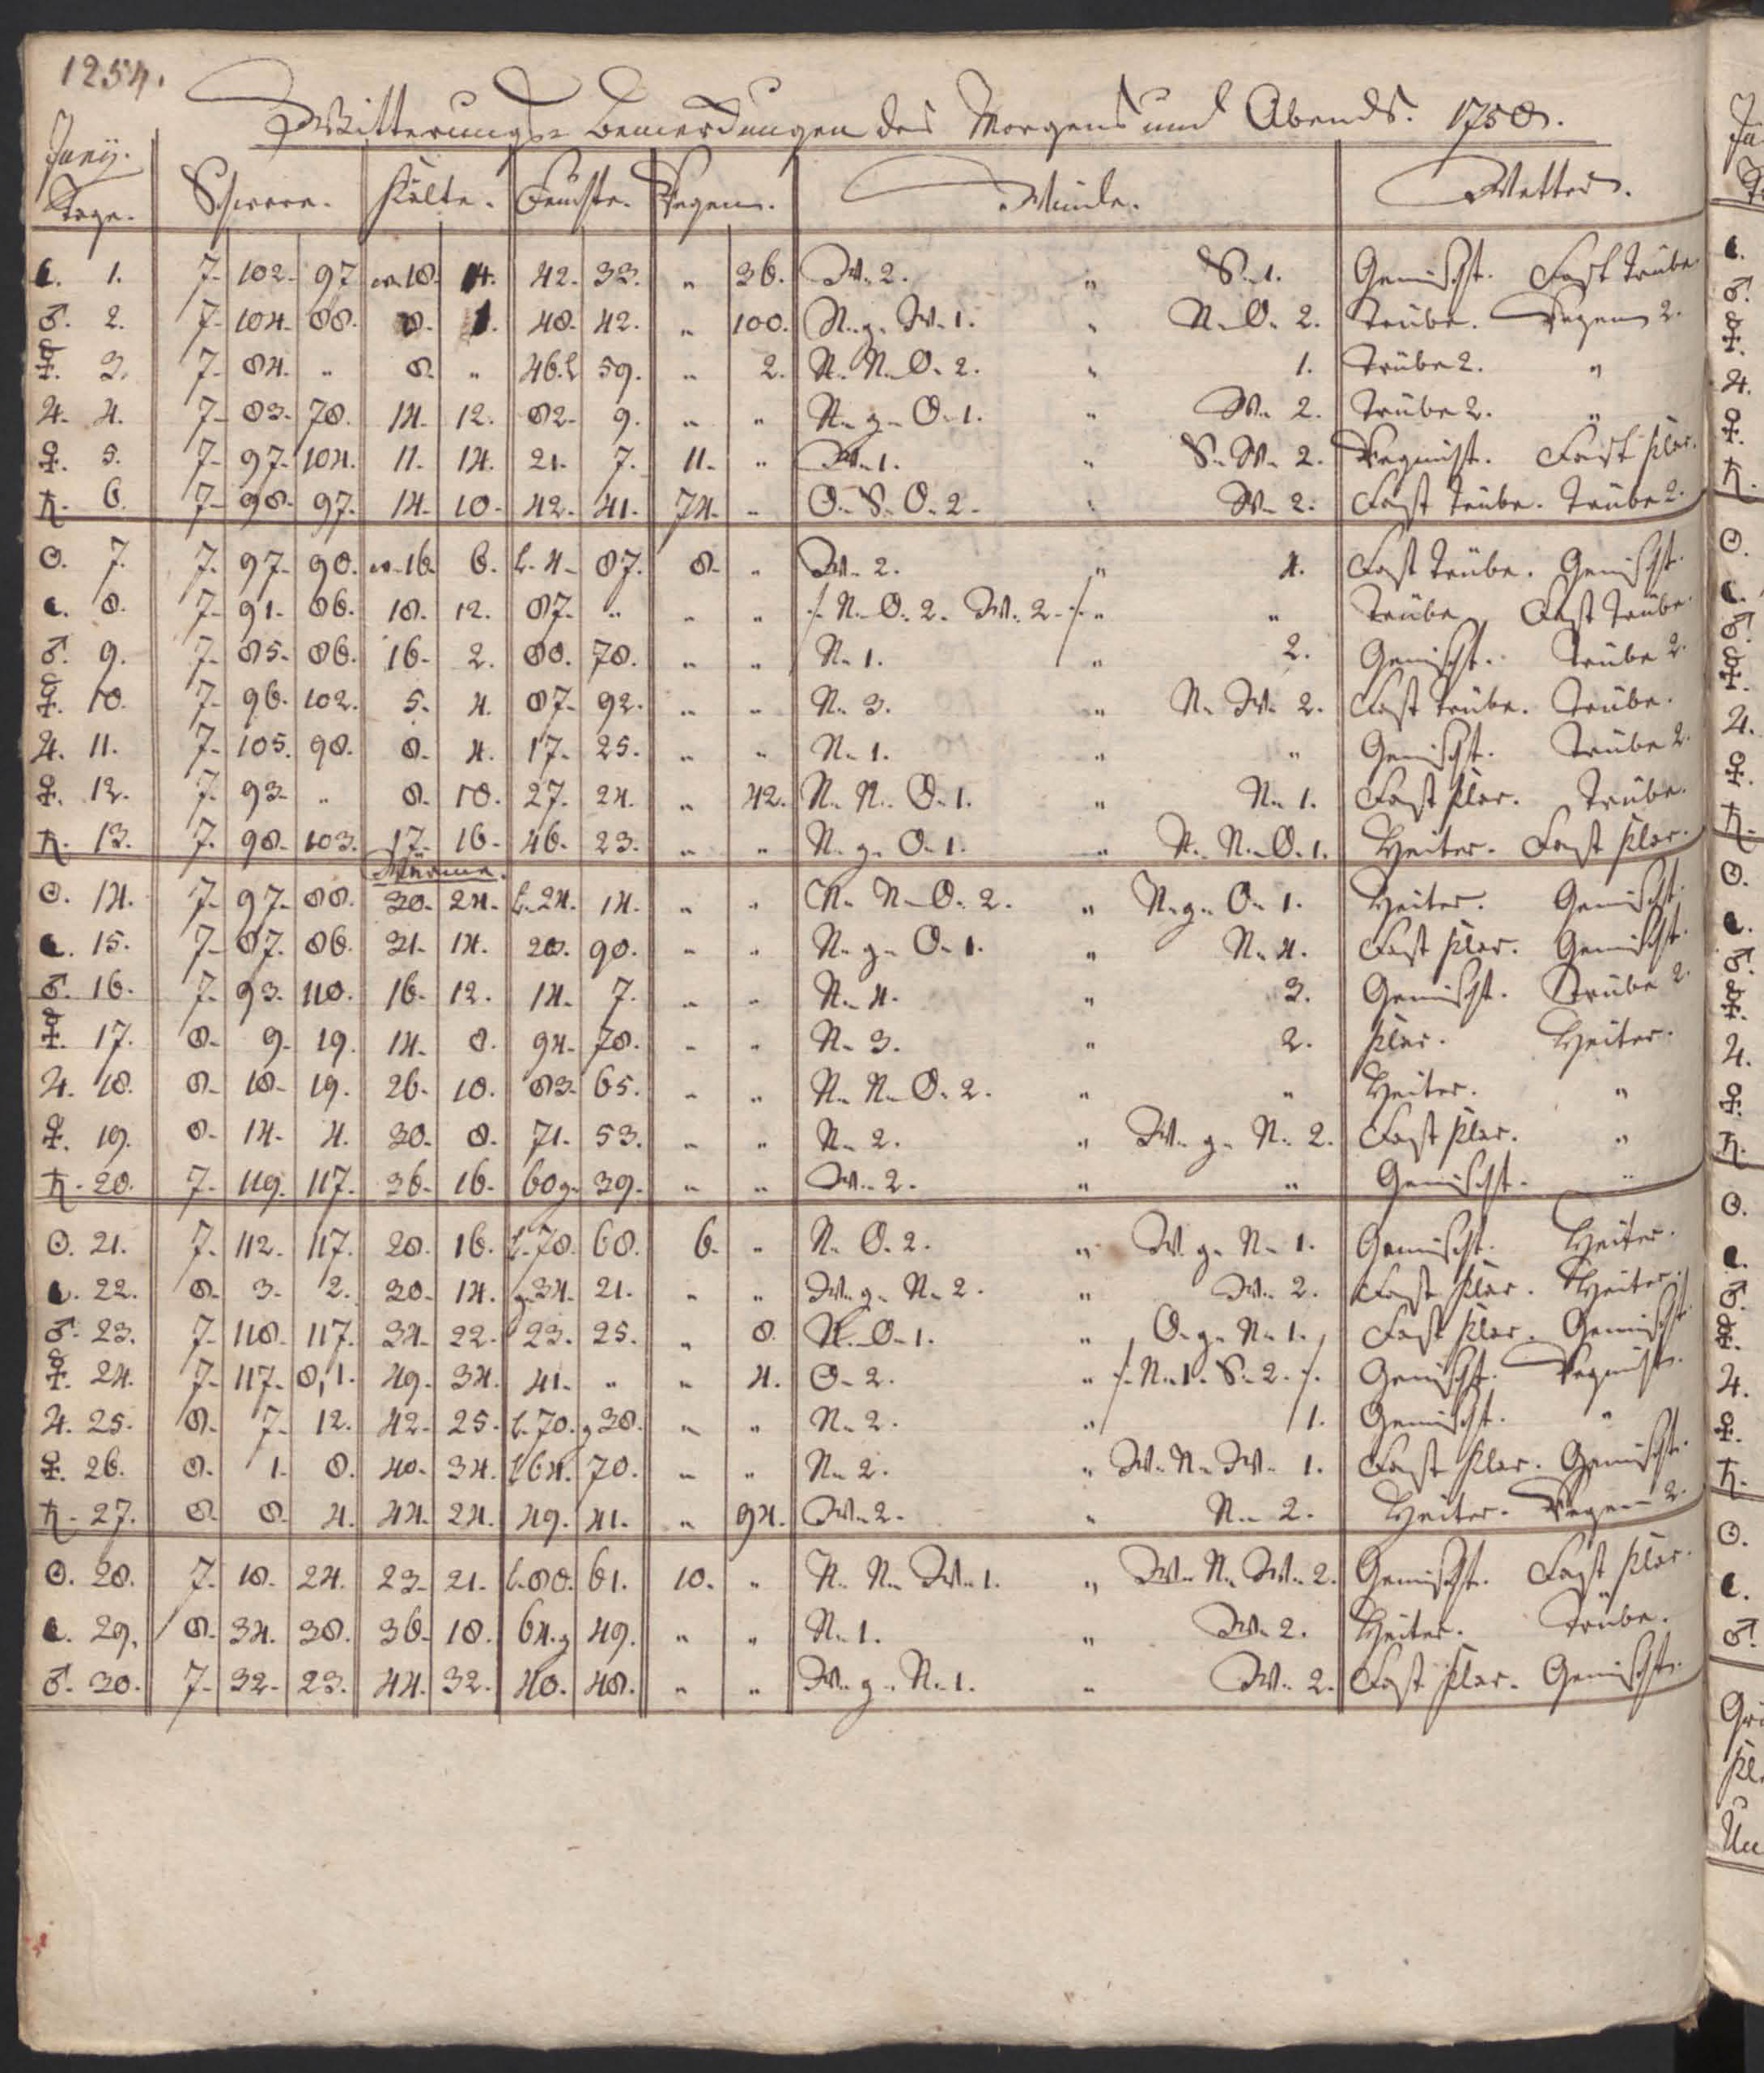 1254.
Witterungs=bemerckungen des Morgens und Abends. 1750.
Junij.
Tage. Schwere. Kälte. Feuchte. Regen. Winde. Wetter.
☾. 1. 7. 102. 97 18. 14. 42. 33. " 36. W. 2. " S. 1. Gemischt. Fast trübe.
♂. 2. 7. 104. 88. 8. 1. 48. 42. " 100. N. g. W. 1. " N. O. 2. Trübe. Regen 2.
☿. 3. 7. 84. " 8. " 46. 59. " 2. N. N. O. 2. " 1. Trübe 2. "
♃. 4. 7. 83. 78. 14. 12. 82. 9. " " N. g. O. 1. " W. 2. Trübe 2. "
♀. 5. 7. 97. 104. 11. 14. 21. 7. 11. " W. 1. " S. W. 2. Regnicht. Fast klar.
♄. 6. 7. 98. 97. 14. 10. 42. 41. 74. " O. S. O. 2. " W. 2. Fast trübe. Trübe 2.
☉. 7. 7. 97. 90. 16. 6. t. 4. 87. 8. " W. 2. " 4. Fast trübe. Gemischt.
☾. 8. 7. 91. 86. 18. 12. 87. " " " /. N. O. 2. W. 2. ./. " " Trübe. Fast trübe.
♂. 9. 7. 85. 86. 16. 2. 80. 78. " " N. 1. " 2. Gemischt. Trübe 2.
☿. 10. 7. 96. 102. 5. 4. 87. 92. " " N. 3. " N. W. 2. Fast trübe. Trübe.
♃. 11. 7. 105. 98. 8. 4. 17. 25. " " N. 1. " " Gemischt. Trübe 2.
♀. 12. 7. 93. " 8. 10. 27. 24. " 42. N. N. O. 1. " N. 1. Fast klar. Trübe.
♄. 13. 7. 98. 103. 17. 16. 46. 23. " " N. g. O. 1. " N. N. O. 1. Heiter. Fast klar.
Wärme.
☉. 14. 7. 97. 88. 30. 24. t. 24. 14. " " N. N. O. 2. " N. g. O. 1. Heiter. Gemischt.
☾. 15. 7. 87. 86. 31. 14. 20. 90. " " N. g. O. 1. " N. 4. Fast klar. Gemischt.
♂. 16. 7. 93. 110. 16. 12. 14. 7. " " N. 4. " 3. Gemischt. Trübe 2.
☿. 17. 8. 9. 19. 14. 8. 94. 78. " " N. 3. " 2. Klar. Heiter.
♃. 18. 8. 18. 19. 26. 10. 83. 65. " " N. N. O. 2. " " Heiter. "
♀. 19. 8. 14. 4. 30. 8. 71. 53. " " N. 2. " W. g. N. 2. Fast klar. "
♄. 20. 7. 119. 117. 36. 16. 60 g. 39. " " W. 2. " " Gemischt. "
☉. 21. 7. 112. 117. 28. 16. t. 78. 68. 6. " N. O. 2. " W. g. N. 1. Gemischt. Heiter.
☾. 22. 8. 3. 2. 30. 14. g. 34. 21. " " W. g. N. 2. " W. 2. Fast klar. Heiter.
♂. 23. 7. 118. 117. 34. 22. 23. 25. " 8. N. O. 1. " O. g. N. 1. Fast klar. Gemischt.
☿. 24. 7. 117. 8, 1. 49. 34. 41. " " 4. O. 2. " /. N. 1. S. 2. /. Gemischt. Regnicht.
♃. 25. 8. 7. 12. 42. 25. t. 70. g 38. " " N. 2. " 1. Gemischt. "
♀. 26. 8. 1. 8. 40. 34. t 64. 70. " " N. 2. " W. N. W. 1. Fast klar. Gemischt.
♄. 27. 8. 8. 4. 44. 24. 49. 41. " 94. W. 2. " N. 2. Heiter. Regen 2.
☉. 28. 7. 18. 24. 23. 21. t. 80. 61. 10. " N. N. W. 1. " W. N. W. 2. Gemischt. Fast klar.
☾. 29. 8. 34. 38. 36. 18. 64. g 49. " " N. 1. " W. 2. Heiter. Trübe.
♂. 30. 7. 32. 23. 44. 32. 40. 48. " " W. g. N. 1. " W. 2. Fast klar. Gemischt.